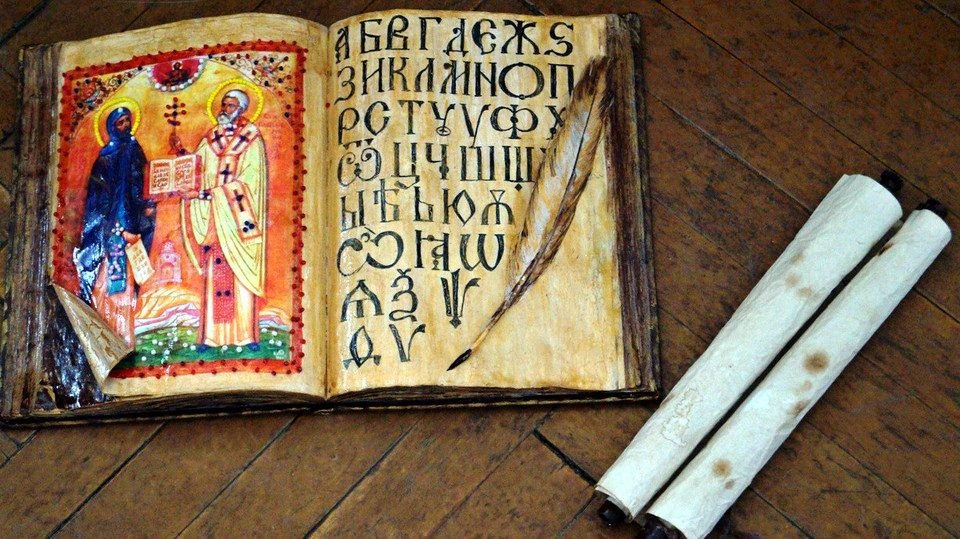 АБВГДЄЖЅ
ЗИКЛМНОП
РСТꙊУФХ
ѼЦЧШЩ
ЫѢЬЮѪ
ѼꙖѠ
ѦѮѰ
ѲѴ